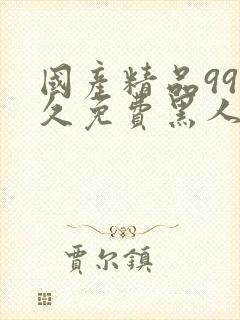 國産精品99
久免費黑人
賈尔鎮